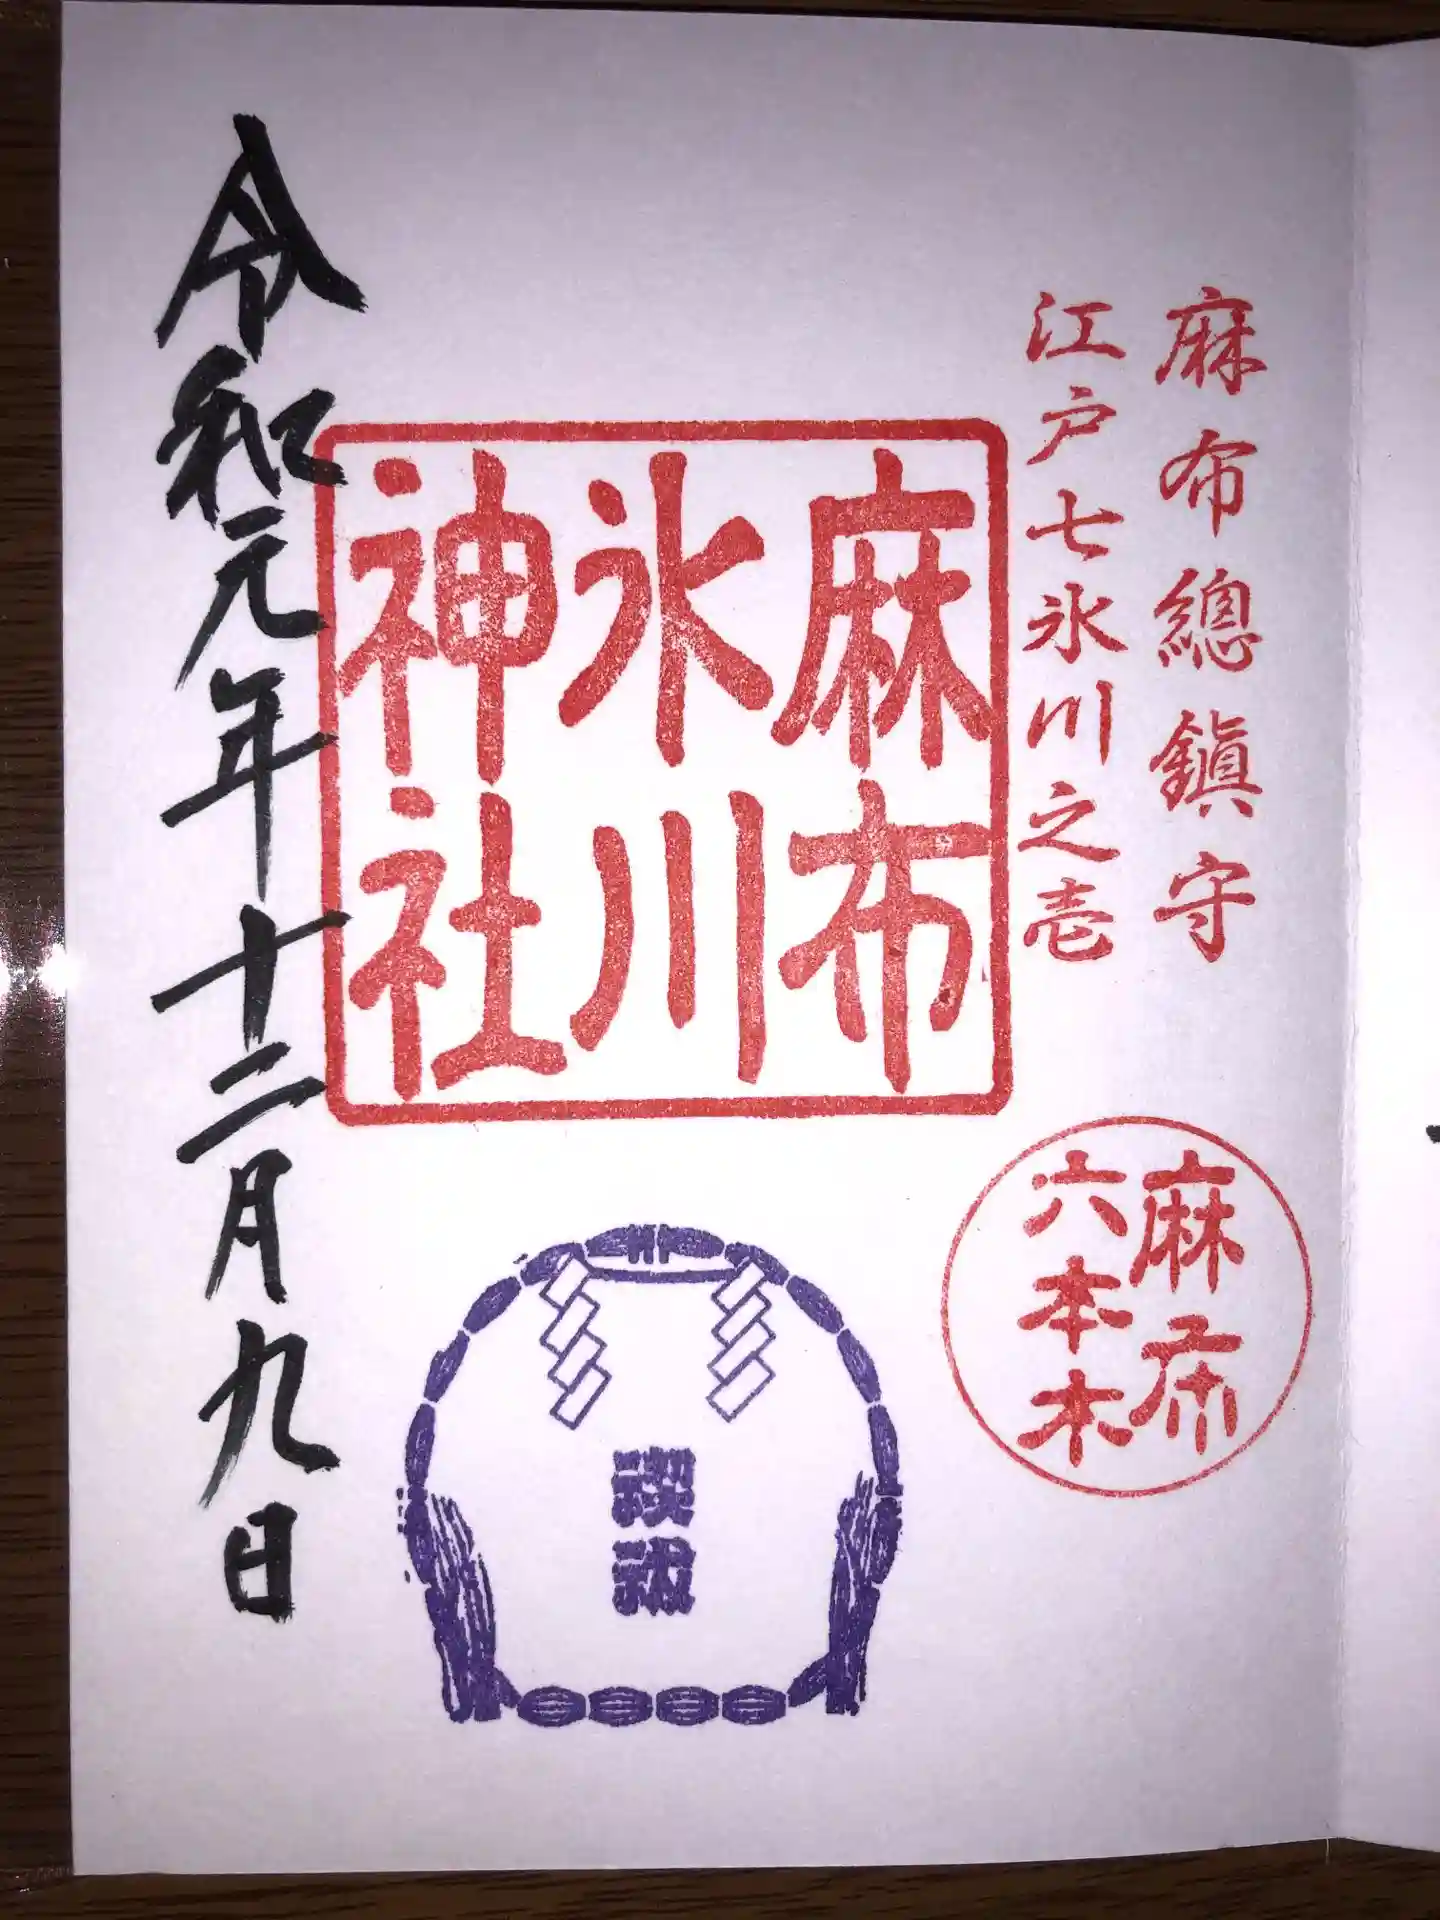 麻布總鎮守
江戸七氷川之壱
麻布
氷川
神社
麻布
六本木
禊祓
令和元年十二月九日